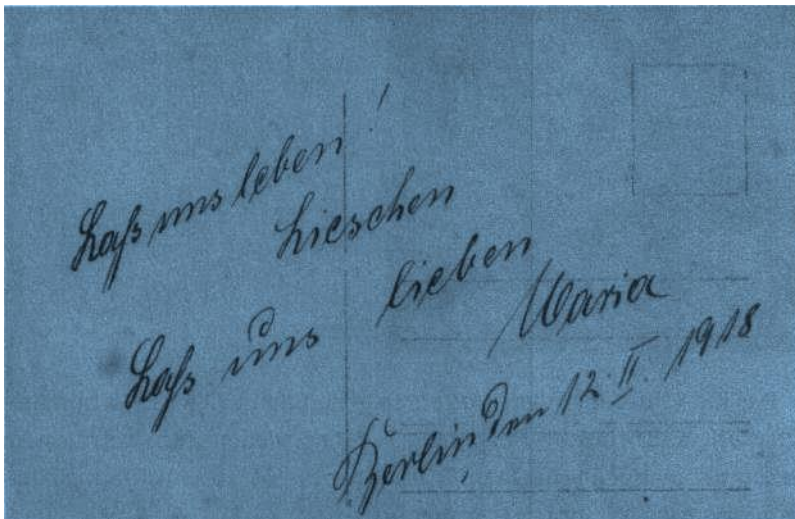 Laß uns leben!
Lieschen
Laß uns lieben
Maria
Berlin den 12. II. 1918